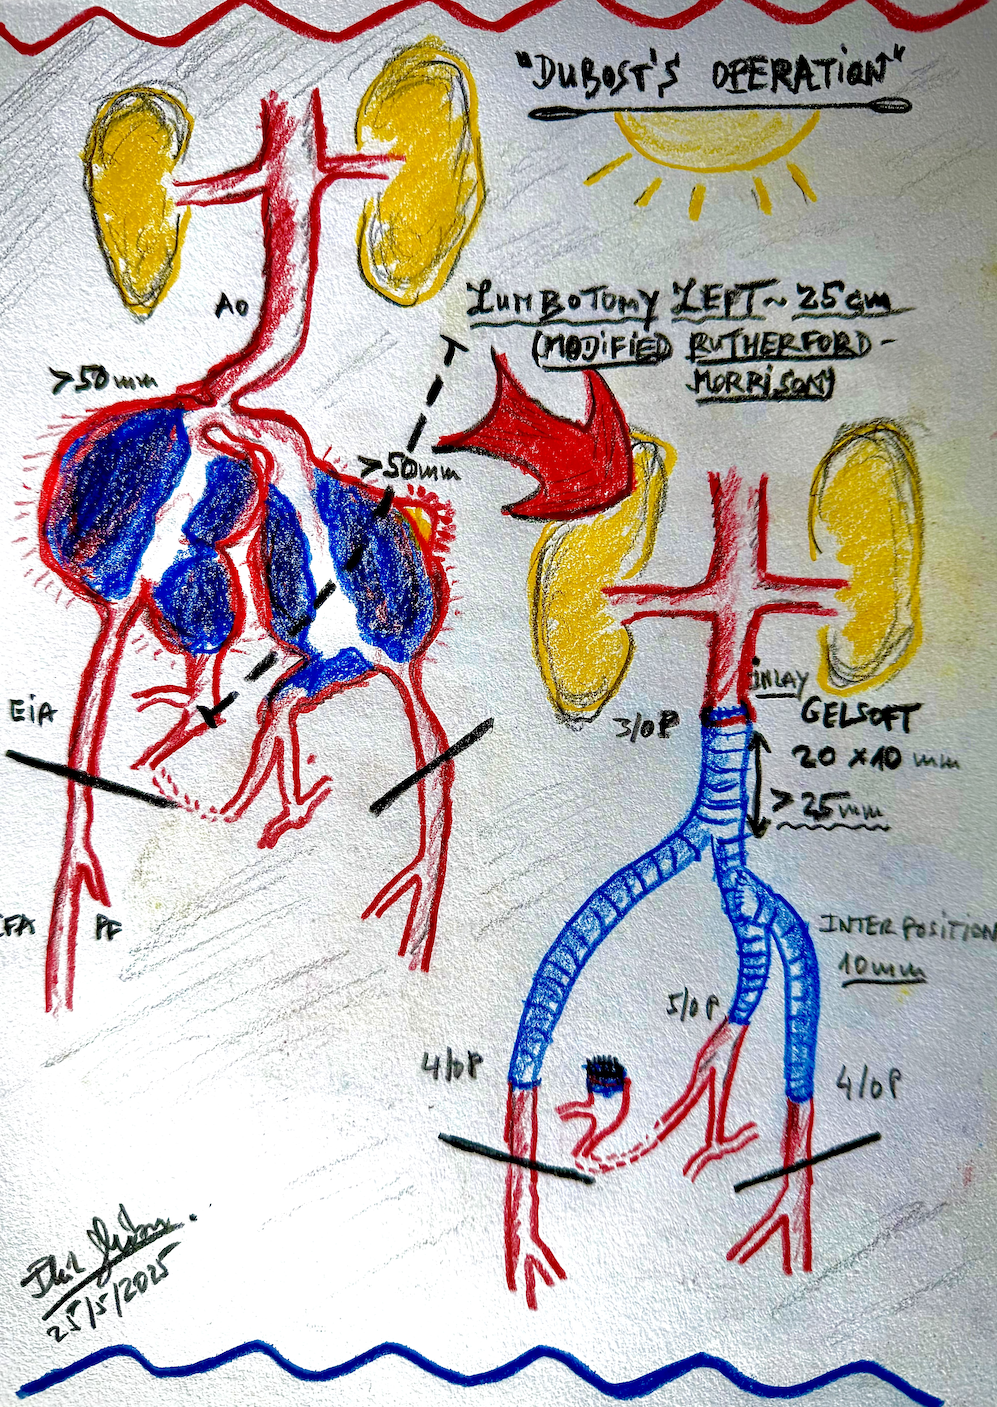 "DUBOST'S OPERATION"
LUMBOTOMY LEFT ~ 25cm
(MODIFIED RUTHERFORD-
MORRISON)
AO
>50mm
>50mm
EIA
CFA PF
INLAY
GELSOFT
20 x 10 mm
>25mm
3/0P
INTERPOSITION
10mm
5/0P
4/0P
4/0P
25/5/2025